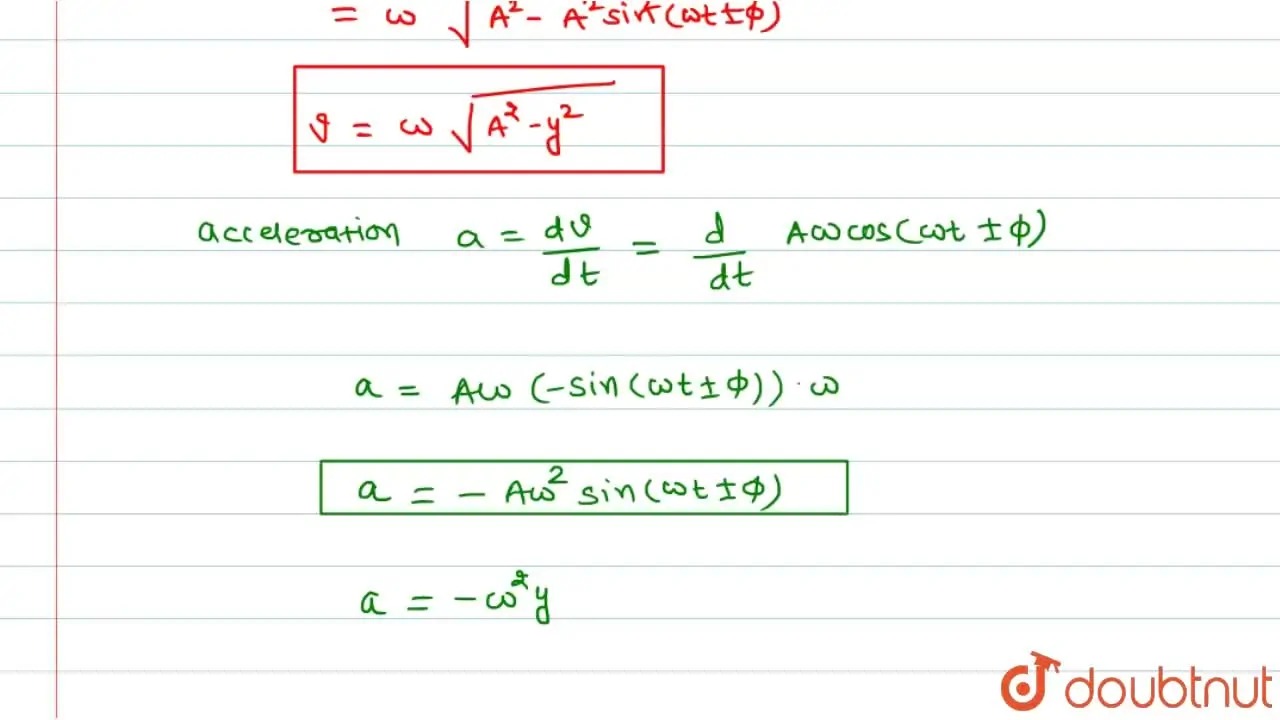 = ω √A² - A² sin²(ωt ± ϕ)
v = ω √A² - y²
acceleration a = dv/dt = d/dt Aω cos(ωt ± ϕ)
a = Aω (- sin(ωt ± ϕ)) · ω
a = - Aω² sin(ωt ± ϕ)
a = - ω² y
doubtnut